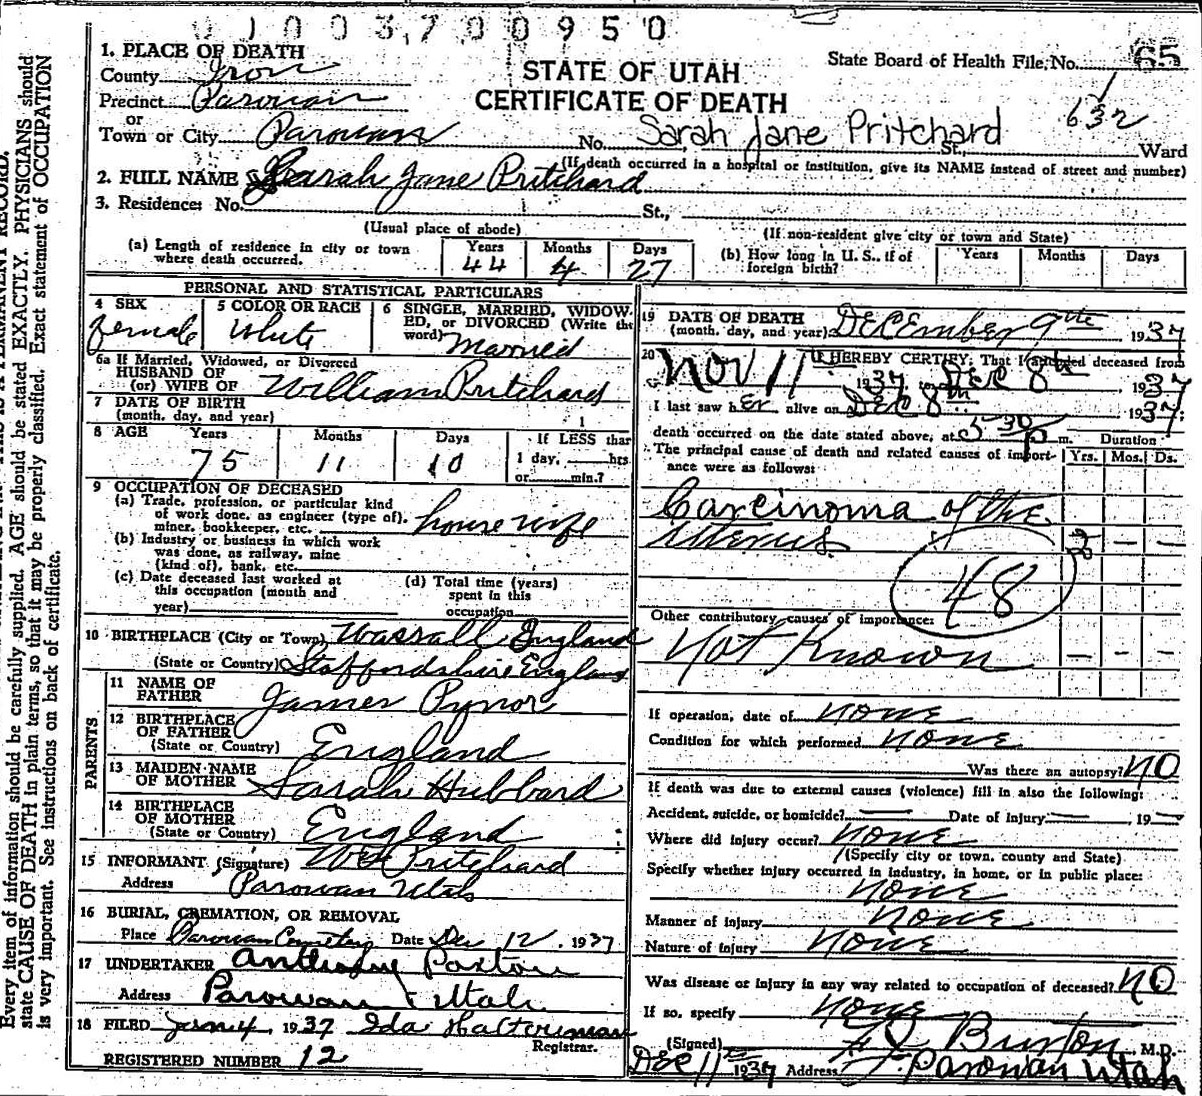 0 1 0 0 3 7 0 0 9 5 0
1. PLACE OF DEATH
County Iron
Precinct Parowan
or
Town or City Parowan
STATE OF UTAH
CERTIFICATE OF DEATH
State Board of Health File No. 65
632
No. Sarah Jane Pritchard St. Ward
(If death occurred in a hospital or institution, give its NAME instead of street and number)
2. FULL NAME Sarah Jane Pritchard
3. Residence: No. St.,
(Usual place of abode) (If non-resident give city or town and State)
(a) Length of residence in city or town where death occurred. Years 44 Months 4 Days 27
(b) How long in U. S., if of foreign birth? Years Months Days
PERSONAL AND STATISTICAL PARTICULARS
4 SEX female
5 COLOR OR RACE White
6 SINGLE, MARRIED, WIDOWED, or DIVORCED (Write the word) Married
6a If Married, Widowed, or Divorced
HUSBAND OF
(or) WIFE OF William Pritchard
7 DATE OF BIRTH
(month, day, and year)
8 AGE Years 75 Months 11 Days 10
If LESS than 1 day, hrs.
or min.?
9 OCCUPATION OF DECEASED
(a) Trade, profession, or particular kind
of work done, as engineer (type of),
miner, bookkeeper, etc. housewife
(b) Industry or business in which work
was done, as railway, mine
(kind of), bank, etc.
(c) Date deceased last worked at
this occupation (month and
year)
(d) Total time (years)
spent in this
occupation
10 BIRTHPLACE (City or Town) Wassall England
(State or Country) Staffordshire England
PARENTS
11 NAME OF
FATHER James Pynor
12 BIRTHPLACE
OF FATHER
(State or Country) England
13 MAIDEN NAME
OF MOTHER Sarah Hubbard
14 BIRTHPLACE
OF MOTHER
(State or Country) England
15 INFORMANT (Signature) Wm Pritchard
Address Parowan Utah
16 BURIAL, CREMATION, OR REMOVAL
Place Parowan Cemetery Date Dec 12, 1937
17 UNDERTAKER Anthony Paxton
Address Parowan Utah
18 FILED Jan 4, 1937 Ida Halterman
Registrar.
REGISTERED NUMBER 12
19 DATE OF DEATH
(month, day, and year) December 9th 1937
20 I HEREBY CERTIFY, That I attended deceased from
Nov 11 1937 to Dec 8th 1937
I last saw her alive on Dec 8th 1937:
death occurred on the date stated above, at 5 30 p m. Duration
The principal cause of death and related causes of importance were as follows: Yrs. Mos. Ds.
Carcinoma of the
Uterus 2 – –
48
Other contributory causes of importance:
Not Known – –
If operation, date of none
Condition for which performed none
Was there an autopsy? NO
If death was due to external causes (violence) fill in also the following:
Accident, suicide, or homicide? — Date of injury —, 19—
Where did injury occur? none
(Specify city or town, county and State)
Specify whether injury occurred in industry, in home, or in public place:
none
Manner of injury none
Nature of injury none
Was disease or injury in any way related to occupation of deceased? NO
If so, specify none
(Signed) Burton M.D.
Dec 11th 1937 Address Parowan Utah
Every item of information should be carefully supplied. AGE should be stated EXACTLY. PHYSICIANS should
state CAUSE OF DEATH in plain terms, so that it may be properly classified. Exact statement of OCCUPATION
is very important. See instructions on back of certificate.